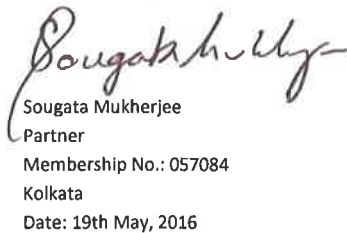 Sougata Mukherjee
Sougata Mukherjee
Partner
Membership No.: 057084
Kolkata
Date: 19th May, 2016